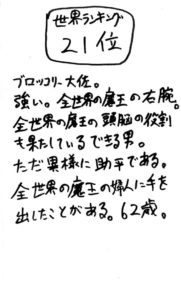 世界ランキング
21位
ブロッコリー大佐。
強い。全世界の魔王の右腕。
全世界の魔王の頭脳の役割
も果たしているできる男。
ただ異様に助平である。
全世界の魔王の婦人に手を
出したことがある。62歳。